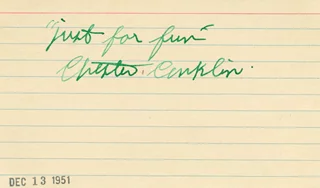 "just for fun"
Chester Conklin.
DEC 13 1951